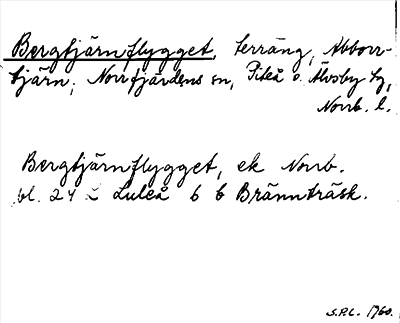 Bergtjärnflygget, terräng, Abborr-
tjärn, Norrfjärdens sn, Piteå o. Älvsby tg,
Norrb. l.
Bergtjärnflygget, ek Norrb.
bl. 24 Luleå 6 b Brännträsk.
S.P.L. 1960.